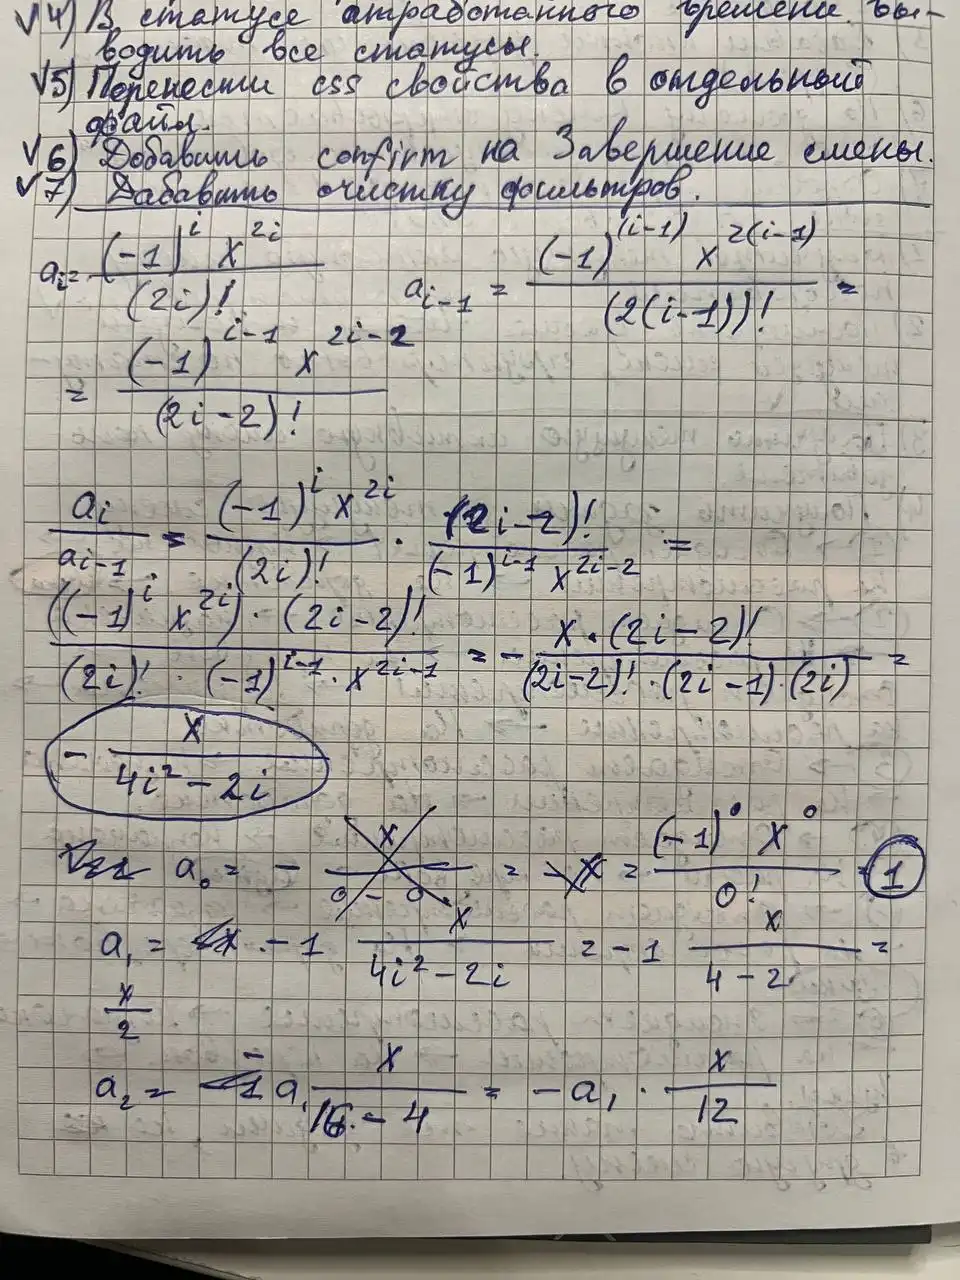 √4) В статусе отработанного времени вы-
водить все статусы.
√5) Перенести css свойства в отдельный
файл.
√6) Добавить confirm на Завершение смены.
√7) Дабавить очистку фильтров.
a_i = ((-1)^i x^{2i}) / (2i)!   a_{i-1} = ((-1)^{(i-1)} x^{2(i-1)}) / (2(i-1))! =
= ((-1)^{i-1} x^{2i-2}) / (2i-2)!
a_i / a_{i-1} = ((-1)^i x^{2i}) / (2i)! · (2i-2)! / ((-1)^{i-1} x^{2i-2}) =
(((-1)^i x^{2i}) · (2i-2)!) / ((2i)! · (-1)^{i-1} · x^{2i-1}) = - (x · (2i-2)!) / ((2i-2)! · (2i-1) · (2i)) =
- x / (4i² - 2i)
a_0 = - x / (0 - 0) = -x = ((-1)^0 x^0) / 0! = 1
a_1 = - 1 x / (4i² - 2i) = - 1 x / (4 - 2) =
x / 2
a_2 = - a_1 x / (16 - 4) = -a_1 · x / 12